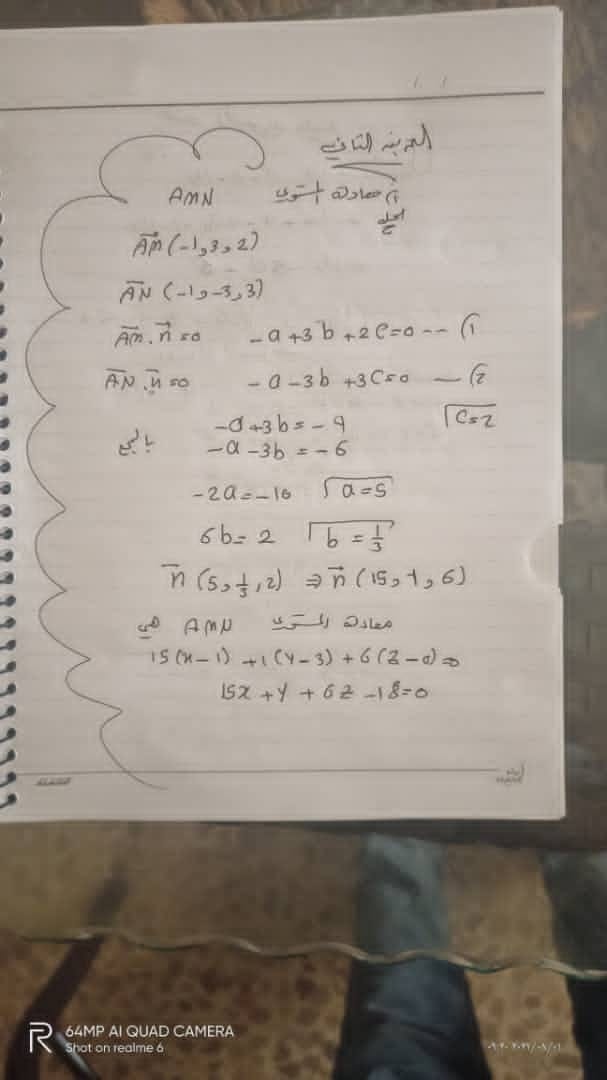 التمرين الثاني
1) معادلة المستوي AMN
الحل
AM→(-1, 3, 2)
AN→(-1, -3, 3)
AM→ . n→ = 0 -a + 3b + 2c = 0 -- (1
AN→ . n→ = 0 -a - 3b + 3c = 0 — (2
c = 2
-a + 3b = -4
-a - 3b = -6
بالجمع
-2a = -10 a = 5
6b = 2 b = 1/3
n→(5, 1/3, 2) ⇒ n→(15, 1, 6)
معادلة المستوي AMN هي
15(x-1) + 1(y-3) + 6(z-0) =0
15x + y + 6z - 18 = 0
64MP AI QUAD CAMERA
Shot on realme 6